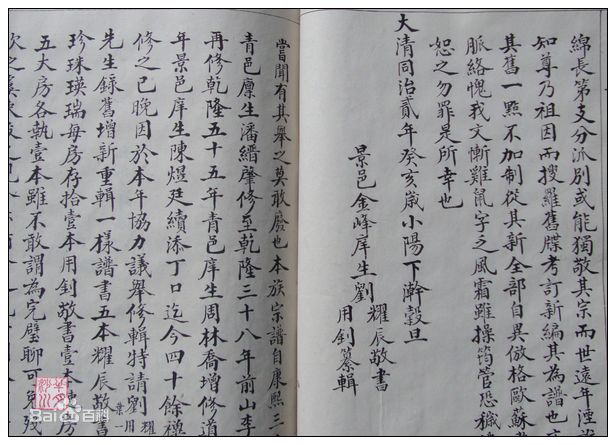 綿長第支分派別或能獨敬其宗而世遠年湮
知尊乃祖因而搜羅舊牒考訂新編其為譜也
其舊一點不加制從其新全部自異倣格歐蘇
脈絡愧我文慚雞鼠字乏風霜雖操筠管恐穢
恕之勿罪是所幸也
大清同治貳年癸亥歲小陽下澣穀旦
景邑金峰庠生劉
耀辰敬書
用釗纂輯
嘗聞有其舉之莫敢廢也本族宗譜自康熙三
青邑廩生潘縉肇修至乾隆三十八年前山李
再修乾隆五十五年青邑庠生周林喬增修道
年景邑庠生陳煜廷續添丁口迄今四十餘禩
修之已晚因於本年協力議舉修輯特請劉耀用
先生錄舊增新重輯一樣譜書五本耀辰敬書
葉一
珍珠瑛瑞每房存拾壹本用釗敬書壹本房
五大房各執壹本雖不敢謂為完璧聊可免殘
Bai百科